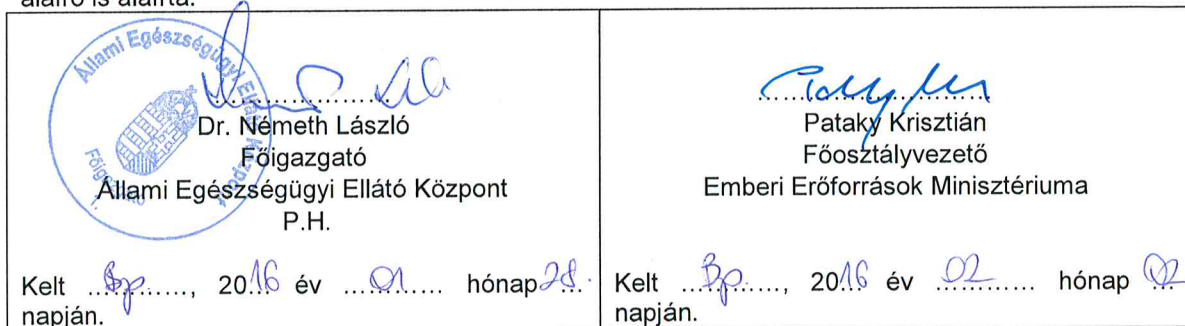 aláíró is aláírta.
Állami Egészségügyi Ellátó Központ
Főigazgató
1.
Dr. Németh László
Főigazgató
Állami Egészségügyi Ellátó Központ
P.H.
Kelt ...Bp......, 20.16 év ....01...... hónap 28.
napján.
Pataky Krisztián
Főosztályvezető
Emberi Erőforrások Minisztériuma
Kelt ...Bp......, 2016 év ..02......... hónap 02
napján.